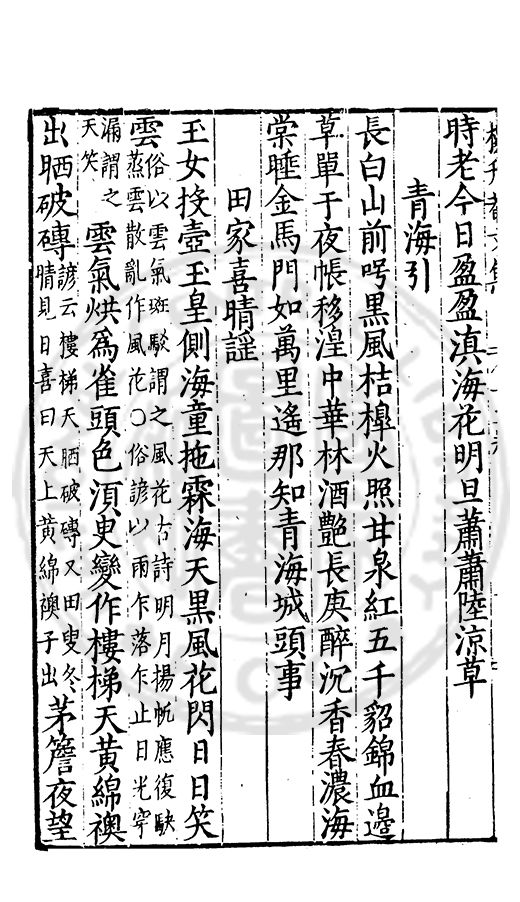 時老今日盈盈滇海花明旦蕭蕭陸涼草
青海引
長白山前呺黑風桔槹火照甘泉紅五千貂錦血邊
草單于夜帳移湟中華林酒艷長庚醉沉香春濃海
棠睡金馬門如萬里遙那知青海城頭事
田家喜晴謠
玉女投壺玉皇側海童拖霖海天黑風花閃日日笑
雲俗以雲氣斑駁謂之風花古詩明月揚帆應復駃
蒸雲散亂作風花○俗諺以雨乍落乍止日光穿
漏謂之
天笑
雲氣烘為雀頭色湏史變作樓梯天黃綿襖
出晒破磚諺云樓梯天晒破磚又田叟冬
晴見日喜曰天上黃綿襖子出
茅簷夜望